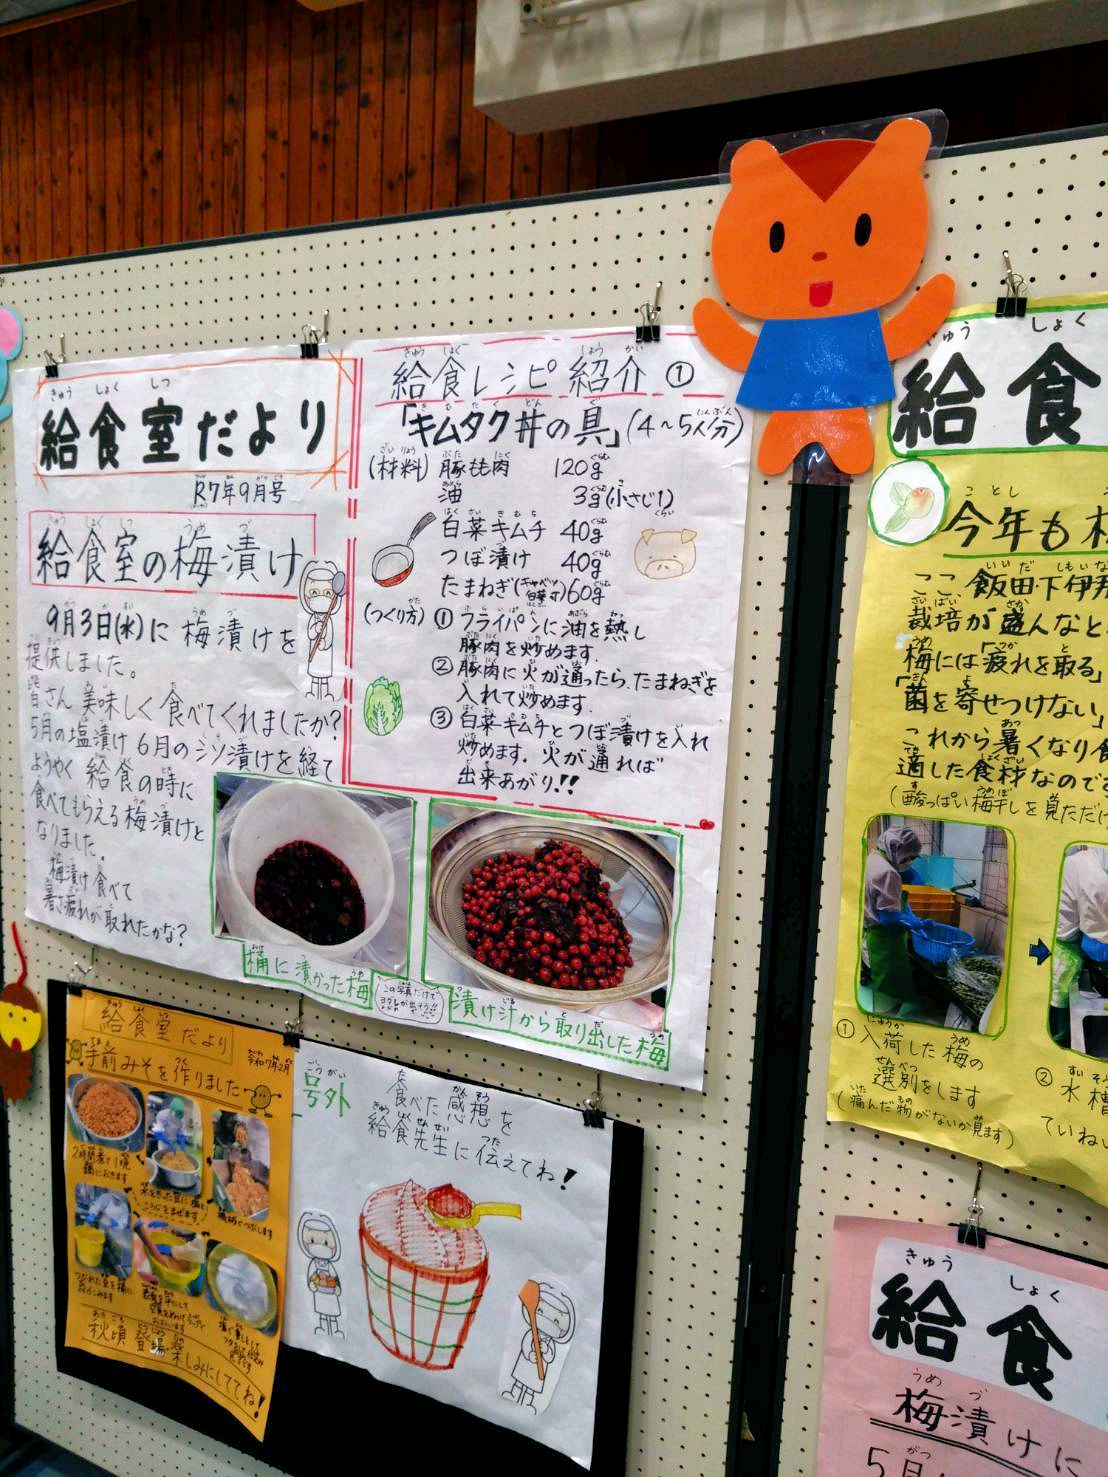 給食室だより
R7年9月号
給食室の梅漬け
9月3日(水)に 梅漬けを
提供しました。
皆さん 美味しく食べてくれましたか?
5月の塩漬け 6月のシソ漬けを経て
ようやく 給食の時に
食べてもらえる梅漬けと
なりました。
梅漬け食べて
暑さ疲れが取れたかな?
給食レシピ紹介①
「キムタク丼の具」(4〜5人分)
(材料) 豚もも肉 120g
油 3g(小さじ1)
白菜キムチ 40g
つぼ漬け 40g
たまねぎ(キャベツ 白菜可)60g
(つくり方) ①フライパンに油を熱し
豚肉を炒めます。
②豚肉に火が通ったら、たまねぎを
入れて炒めます。
③白菜キムチとつぼ漬けを入れ
炒めます。火が通れば
出来あがり!!
桶に漬かった梅
漬け汁から取り出した梅
給食室だより
令和7年2月
手前みそを作りました
秋頃登場 楽しみにしててね!
号外
食べた感想を
給食先生に伝えてね!
給食
今年も
ここ、飯田下伊那
栽培が盛んなと
梅には「疲れを取る」
「菌を寄せつけない」
これから暑くなり食
適した食材なのです
(酸っぱい梅干しを見ただけ
①入荷した梅の
選別をします
(痛んだ物がないか見ます)
②水槽
ていねい
給食
梅漬けに
5月